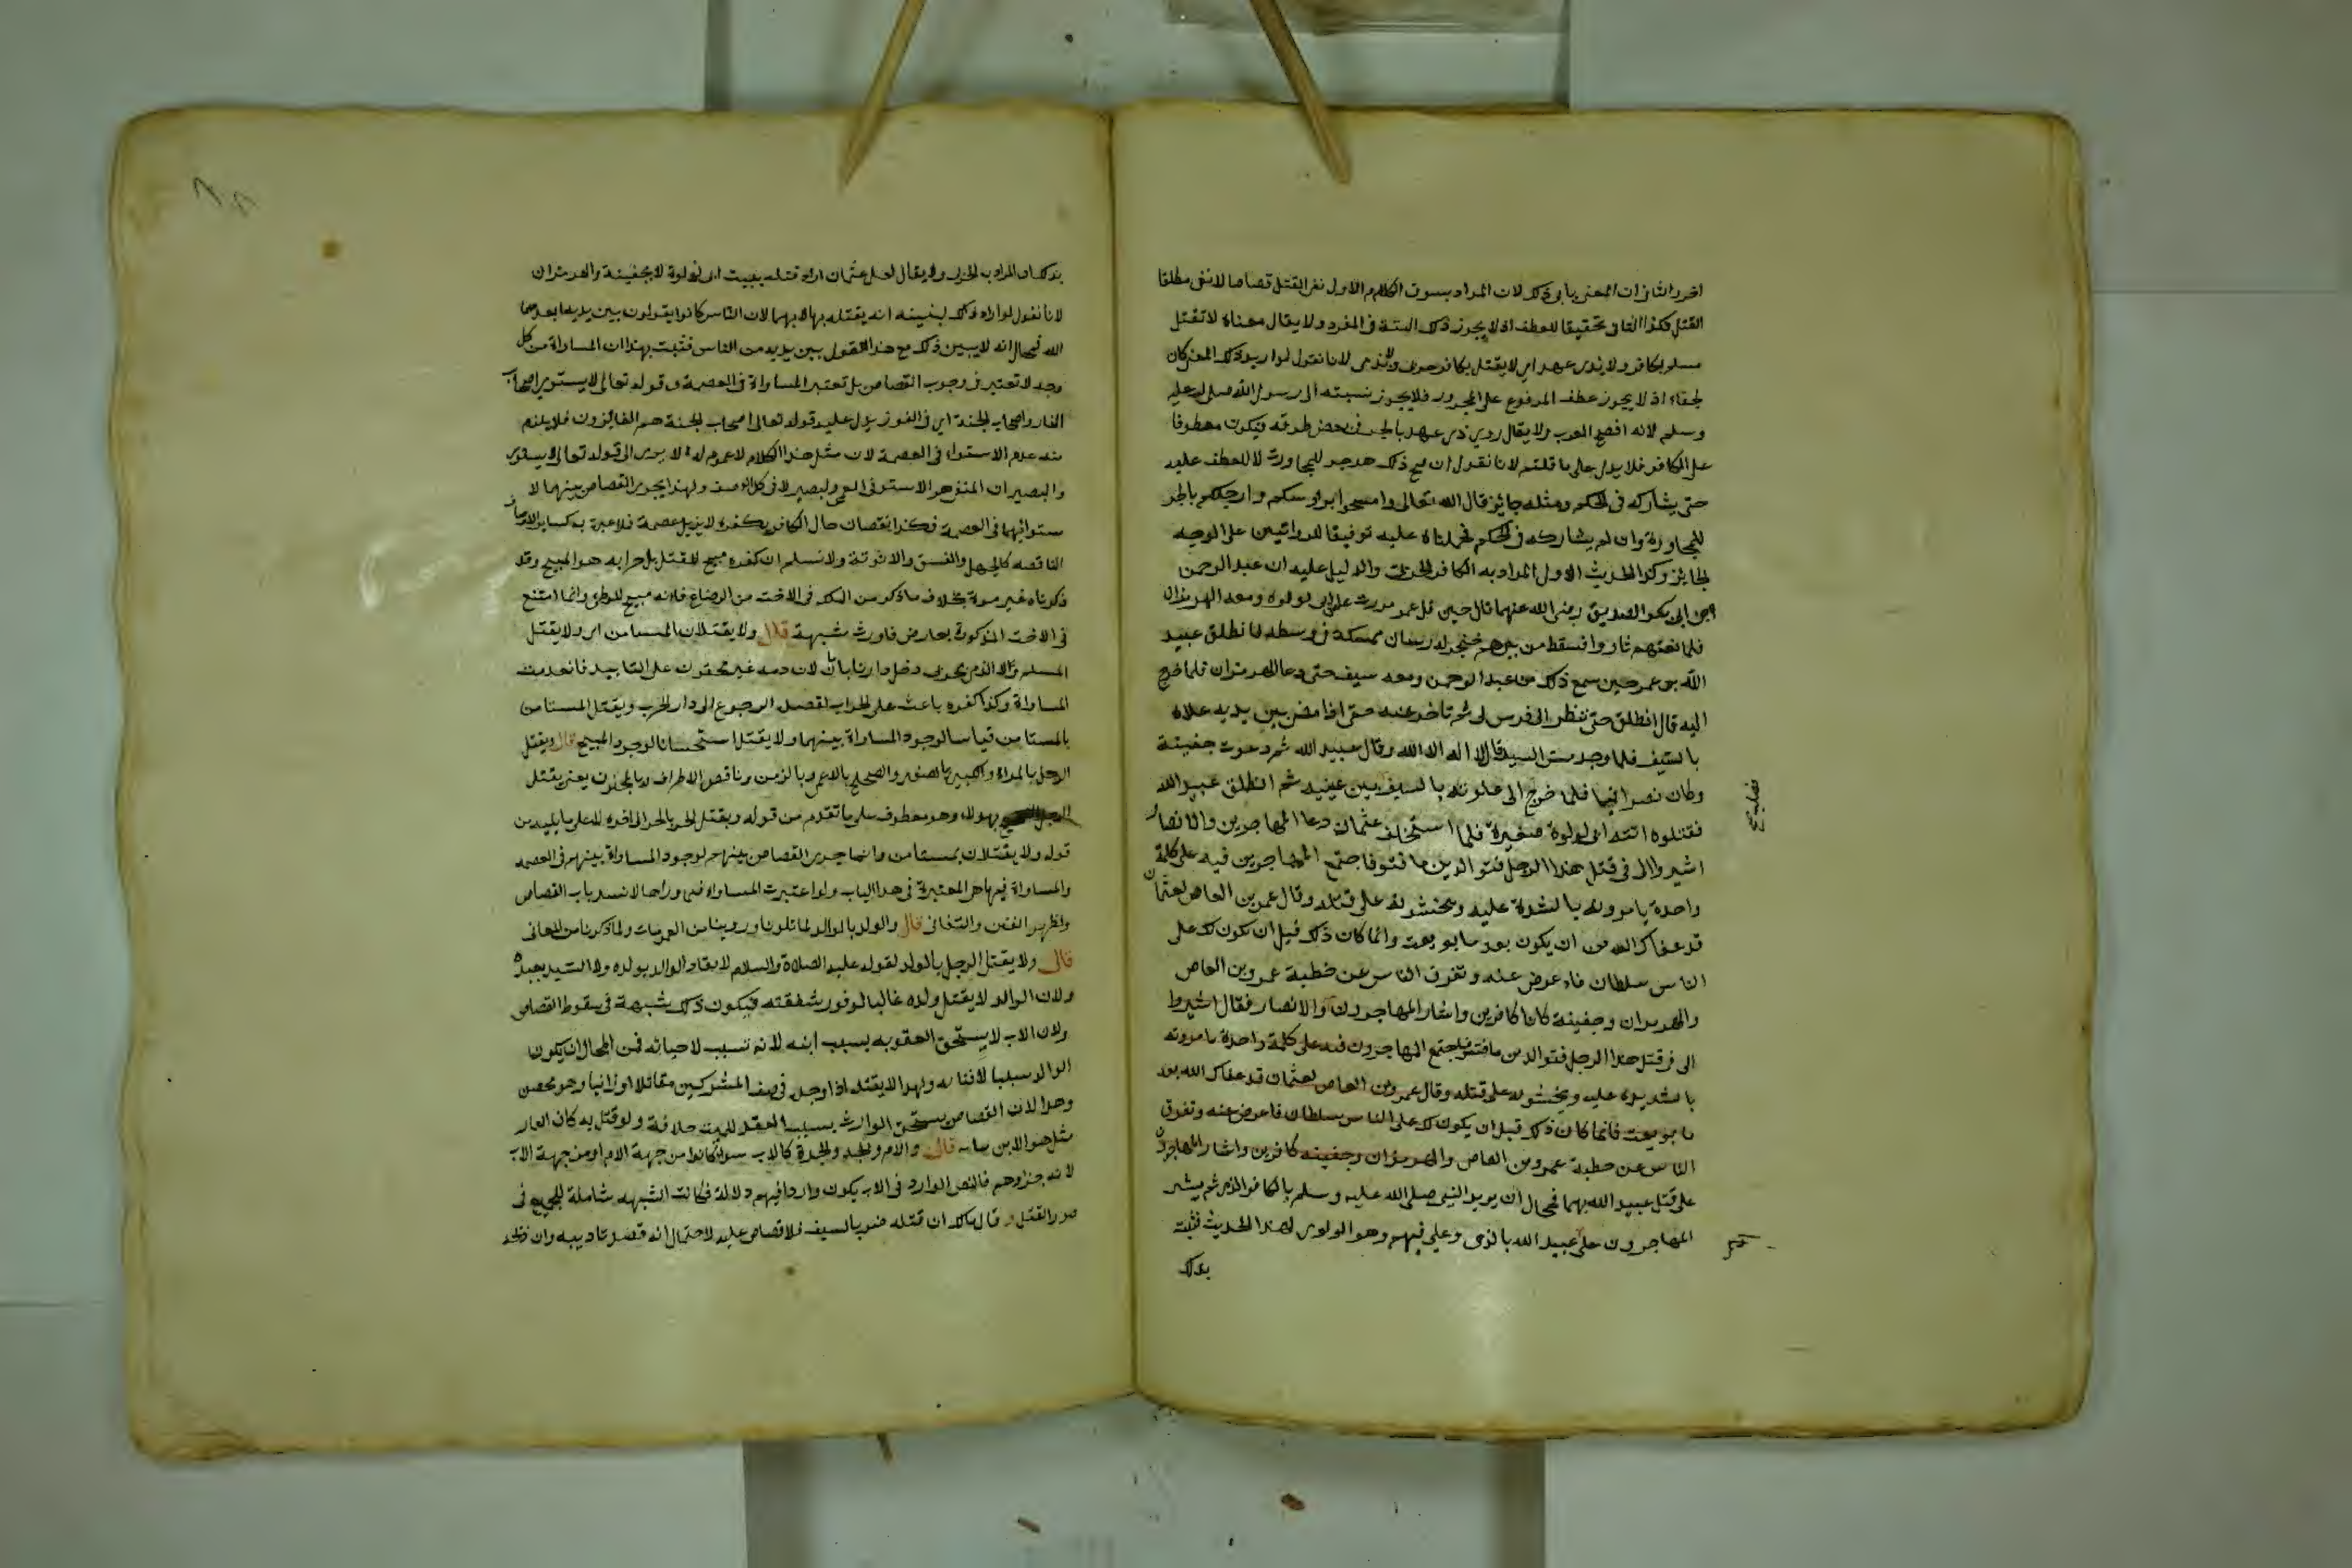 اخر والثانى ان المعنى يابى ذلك لان المراد بسوق الكلام الاول نفى القتل قصاصا لا نفى مطلقا
القتل فكذا الثانى تحقيقا للعطف اذ لا يجوز ذلك البتة فى المفرد ولا يقال معناه لا تقتل
مسلم بكافر ولا ذى عهد اى لا يقتل بكافر حربى ولا ذمى لانا نقول لو اريد ذلك المعنى كان
لحنا اذ لا يجوز عطف المرفوع على المجرور فلا يجوز نسبته الى رسول الله صلى الله عليه
وسلم لانه افصح العرب ولا يقال روى ذى عهد بالجر فى بعض طرقه فيكون معطوفا
على الكافر فلا يدل على ما قلتم لانا نقول ان صح ذلك هو جر للمجاورة لا للعطف عليه
حتى يشاركه فى الحكم ومثله جايز قال الله تعالى وامسحوا برؤسكم وارجلكم بالجر
للمجاورة وان لم يشاركه فى الحكم فحملناه عليه توفيقا للروايتين على الوجه
الجايز وكذا الحديث الاول المراد به الكافر الحربى والدليل عليه ان عبد الرحمن
بن ابى بكر الصديق رضى الله عنهما قال حين قتل عمر مررت على ابى لولوة ومعه الهرمزان
فلما بغتهم ثاروا فسقط من بينهم خنجر له راسان ممسكه فى وسطه فانطلق عبيد
الله بن عمر حين سمع ذلك من عبد الرحمن ومعه سيف حتى دعا الهرمزان فلما خرج
اليه قال انطلق حتى ننظر الى فرس لى ثم تاخر عنه حتى اذا مضى بين يديه علاه
بالسيف فلما وجد مس السيف قال لا اله الا الله وقال عبيد الله ثم دعوت جفينة
وكان نصرانيا فلما خرج الى علوته بالسيف بين عينيه ثم انطلق عبيد الله
فقتلوه ابنة ابى لولوة صغيرة فلما استخلف عثمان دعا المهاجرين والانصار
اشيروا الى فى قتل هذا الرجل فتق الدين ما فتق فاجتمع المهاجرين فيه على كلمة
واحدة يامرونه بالشدة عليه ويحثونه على قتله وقال عمرو بن العاص لعثمان
قد عفاك الله من ان يكون بعد ما بويعت وانما كان ذلك قبل ان يكون لك على
الناس سلطان فاعرض عنه وتفرق الناس عن خطبة عمرو بن العاص
والهرمزان وجفينة كانا كافرين واشار المهاجرون والانصار فقال اشيروا
الى فى قتل هذا الرجل فتق الدين ما فتق فاجتمع المهاجرون فيه على كلمة واحدة يامرونه
بالشديدة عليه ويحثونه على قتله وقال عمرو بن العاص لعثمان قد عفاك الله بعد
ما بويعت فانما كان ذلك قبل ان يكون لك على الناس سلطان فاعرض عنه وتفرق
الناس عن خطبة عمرو بن العاص والهرمزان وجفينه كافرين واشار المهاجرون
على قتل عبيد الله بهما فمحال ان يريد النبى صلى الله عليه وسلم بالكافر الذمى ثم يشير
المهاجرون على عبيد الله بالذمى وعلى فيهم وهو الراوى لهذا الحديث فثبت
بذلك
بذلك ان المراد به الحربى ولا يقال لعل عثمان اراد قتله ببنت ابى لولوة لا بجفينة والهرمزان
لانا نقول لو اراد ذلك لبينه انه يقتله بها لا بهما لان الناس كانوا يقولون بين يديه ابعدهما
الله فمحال انه لا يبين ذلك مع هذا القول بين يديه من الناس فثبت بهذا ان المساواة من كل
وجه لا تعتبر فى وجوب القصاص بل تعتبر المساواة فى العصمة وقوله تعالى لا يستوى اصحاب
النار واصحاب الجنة اى فى الفوز يدل عليه قوله تعالى اصحاب الجنة هم الفائزون فلا يلزم
منه عدم الاستواء فى العصمة لان مثل هذا الكلام لا عموم له الا يرى الى قوله تعالى لا يستوى
والبصير ان المنفى هو الاستوى فى العمى والبصر لا فى كل الوصف ولهذا يجرى القصاص بينهما لا
ستوائهما فى العصمة فكذا نقصان حال الكافر بكفره لا يزيل عصمة فلا عبرة به كسائر الاوصاف
الناقصه كالجهل والفسق والانوثة ولا نسلم ان كفره مبيح للقتل بل حرابه هو المبيح وقد
ذكرناه غير مرة بخلاف ما ذكر من الملك فى الاخت من الرضاع فانه مبيح للوطئ وانما امتنع
فى الاخت المذكورة بعارض فاورث شبهة قال ولا يقتلان المستامن اى ولا يقتل
المسلم ولا الذمى بحربى دخل دارنا بامان لان دمه غير محقون على التابيد فانعدمت
المساواة وكذا كفره باعث على الحراب لقصد الرجوع الى دار الحرب ويقتل المستامن
بالمستامن قياسا لوجود المساواة بينهما ولا يقتل استحسانا لوجود المبيح قال ويقتل
الرجل بالمراة والكبير بالصغير والصحيح بالاعمى وبالزمن وناقص الاطراف وبالمجنون يعنى يقتل
الرجل بهولاء وهو معطوف على ما تقدم من قوله ويقتل الحر بالحر الى اخره لا على ما يليه من
قوله ولا يقتلان بمستامن وانما يجرى القصاص بينهم لوجود المساواة بينهم فى العصمه
والمساواة فيها هى المعتبرة فى هذا الباب ولو اعتبرت المساواة فيما وراها لانسد باب القصاص
ولظهر الفتن والتفانى قال والولد بالوالد لما تلونا وروينا من العمومات ولما ذكرنا من المعانى
قال ولا يقتل الرجل بالولد لقوله عليه الصلاة والسلام لا يقاد الوالد بولده ولا السيد بعبده
ولان الوالد لا يقتل ولده غالبا لوفور شفقته فيكون ذلك شبهة فى سقوط القصاص
ولان الاب لا يستحق العقوبه بسبب ابنه لانه تسبب لاحيائه فمن المحال ان يكون
الوالد سببا لافنائه ولهذا لا يقتله اذا وجده فى صف المشركين مقاتلا او زانيا وهو محصن
وهذا لان القصاص يستحق الوارث بسبب العقد للميت خلافة ولو قتل به كان العار
مثل هو الابن قال والام والجد والجدة كالاب سواء كانوا من جهة الام او من جهة الاب
لانه جزاوهم فالنص الوارد فى الاب يكون واردا فيهم دلالة فكانت الشبهه شاملة للجميع فى
صور القتل وقال مالك ان قتله ضربا بالسيف فلا قصاص عليه لاحتمال انه قصد تاديبه وان ذبحه